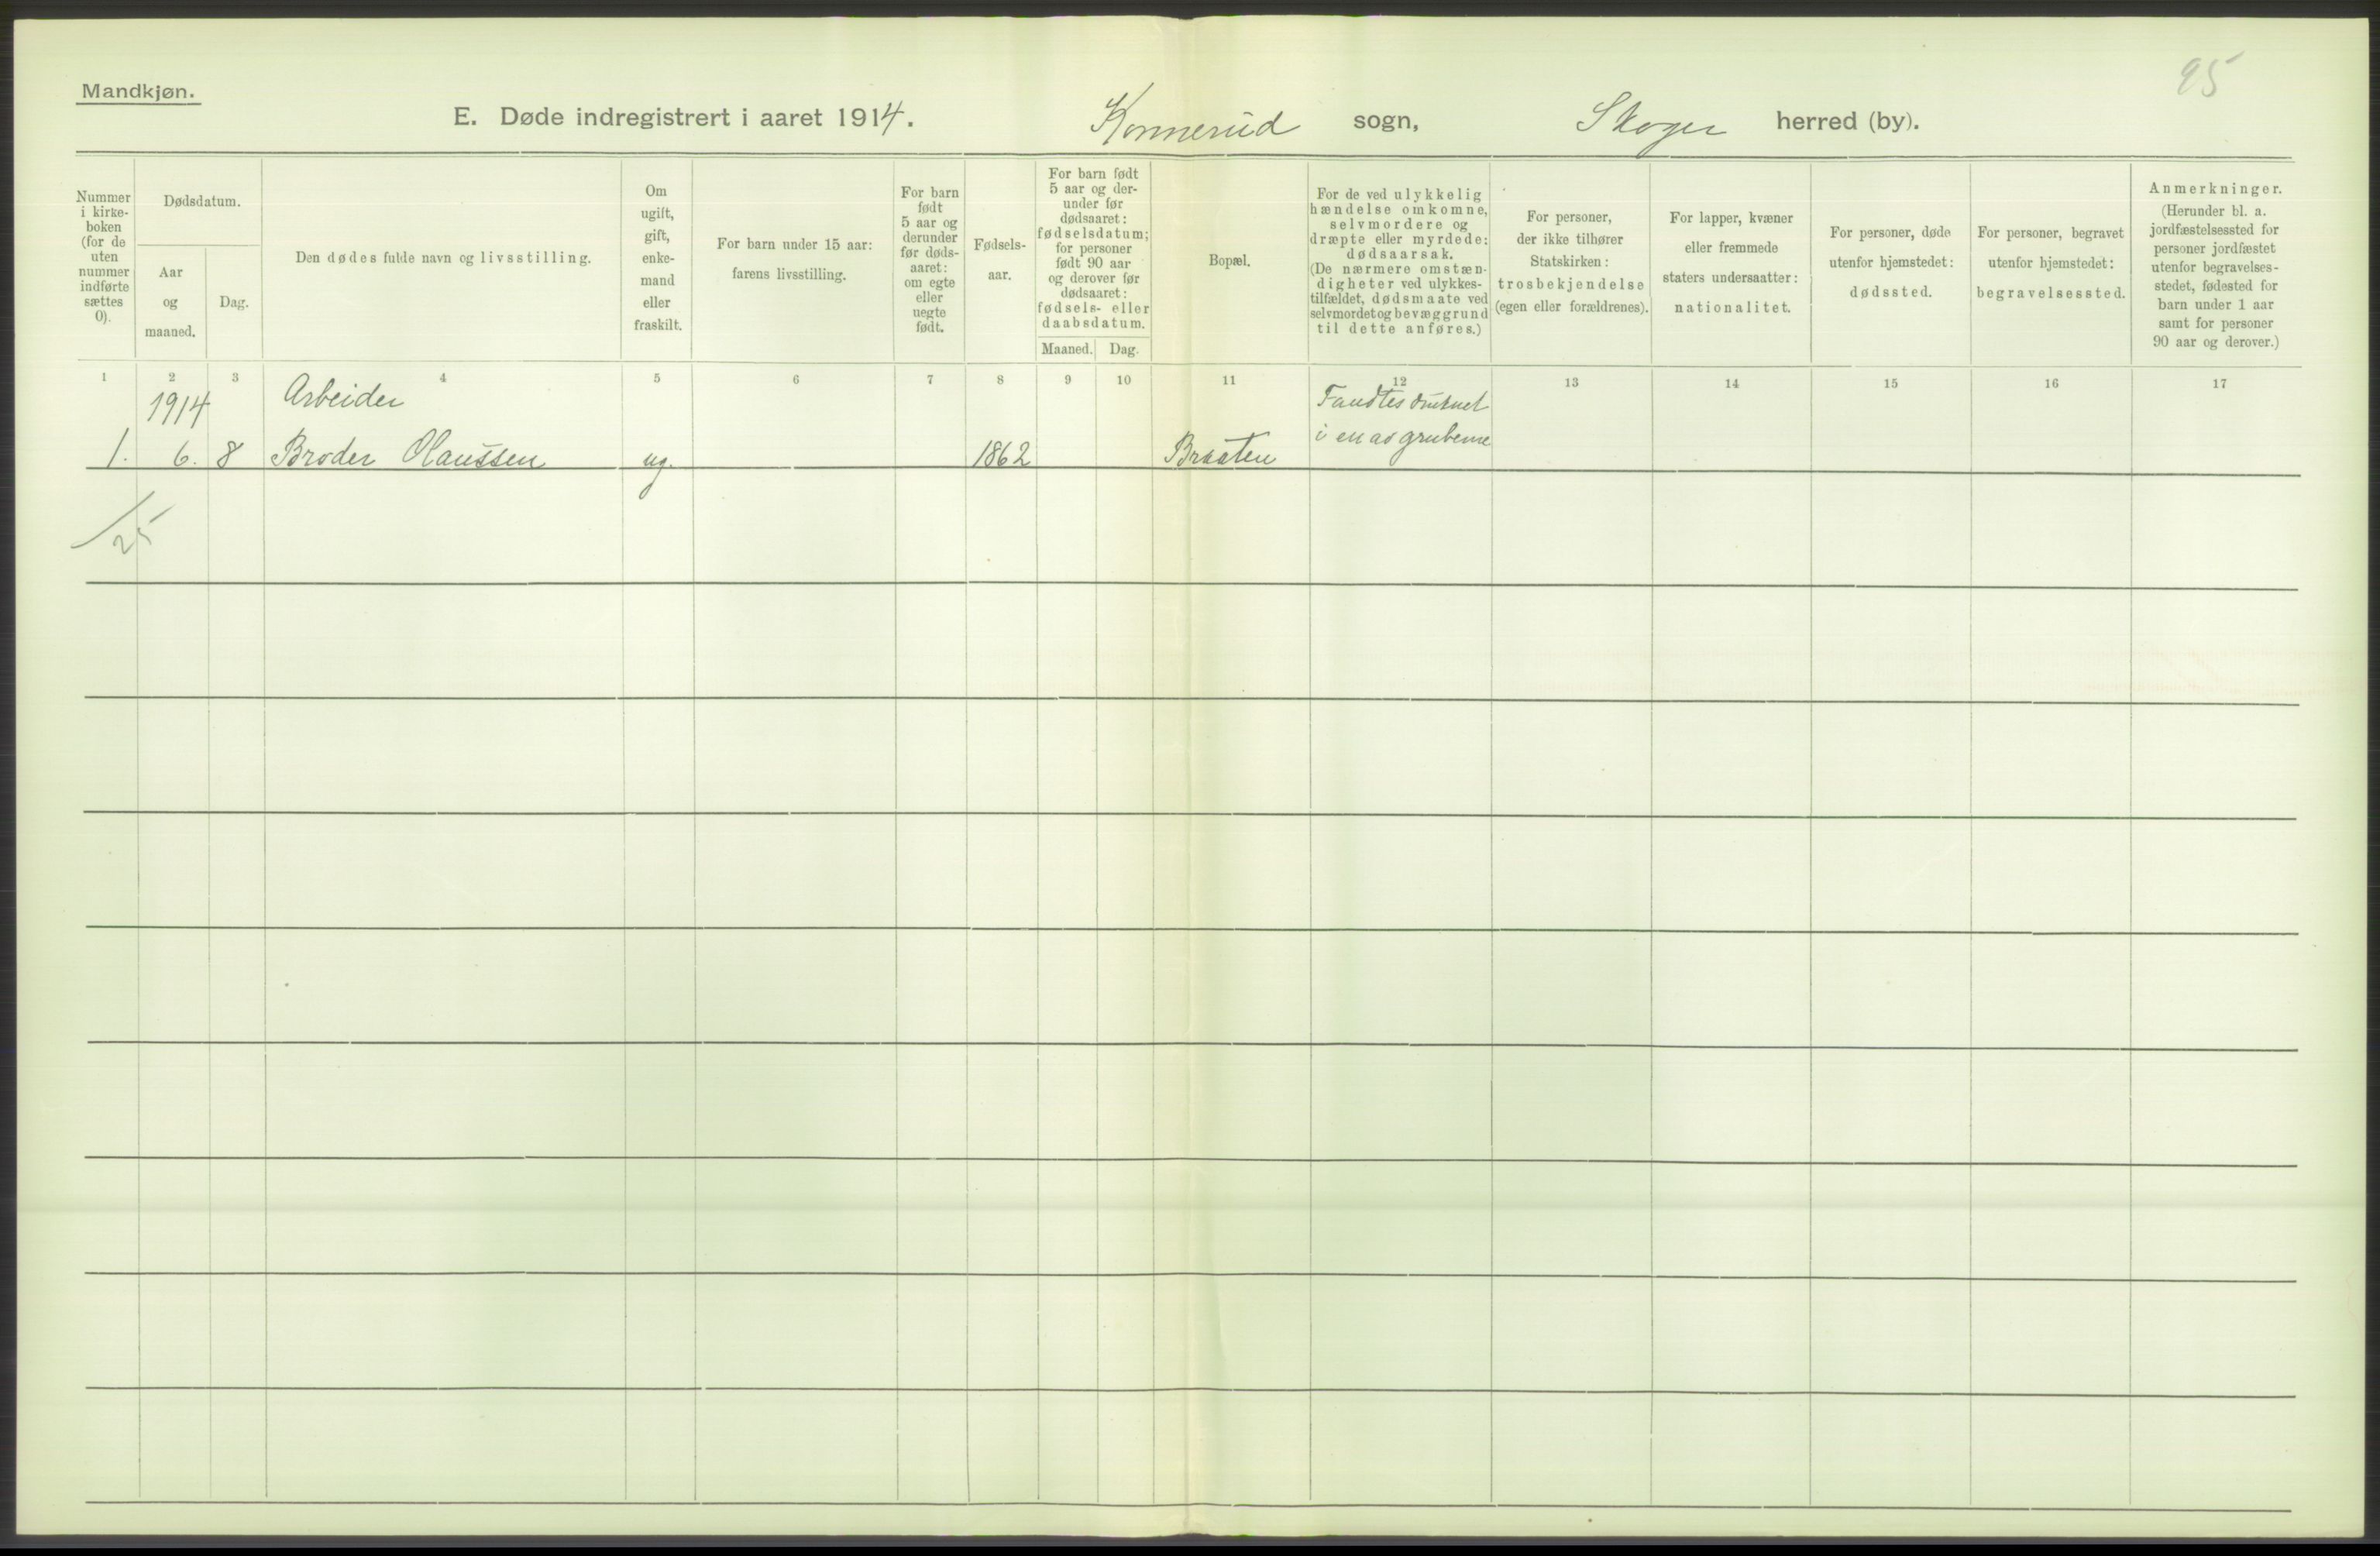 95
Mandkjøn.
E. Døde indregistrert i aaret 1914. Konnerud sogn, Skoger herred (by).
Nummer
i kirke-
boken
(for de
uten
nummer
indførte
sættes
0).
Dødsdatum.
Aar
og
maaned.
Dag.
Den dødes fulde navn og livsstilling.
Om
ugift,
gift,
enke-
mand
eller
fraskilt.
For barn under 15 aar:
farens livsstilling.
For barn
født
5 aar og
derunder
før døds-
aaret:
om egte
eller
uegte
født.
Fødsels-
aar.
For barn født
5 aar og der-
under før
dødsaaret:
fødselsdatum;
for personer
født 90 aar
og derover før
dødsaaret:
fødsels- eller
daabsdatum.
Maaned. Dag.
Bopæl.
For de ved ulykkelig
hændelse omkomne,
selvmordere og
dræpte eller myrdede:
dødsaarsak.
(De nærmere omstæn-
digheter ved ulykkes-
tilfældet, dødsmaate ved
selvmordet og bevæggrund
til dette anføres.)
For personer,
der ikke tilhører
Statskirken:
trosbekjendelse
(egen eller forældrenes).
For lapper, kvæner
eller fremmede
staters undersaatter:
nationalitet.
For personer, døde
utenfor hjemstedet:
dødssted.
For personer, begravet
utenfor hjemstedet:
begravelsessted.
Anmerkninger.
(Herunder bl. a.
jordfæstelsessted for
personer jordfæstet
utenfor begravelses-
stedet, fødested for
barn under 1 aar
samt for personer
90 aar og derover.)
1 2 3 4 5 6 7 8 9 10 11 12 13 14 15 16 17
1914 Arbeider Fandtes druknet
i en av gruberne
1. 6. 8 Broder Olaussen ug. 1862 Braaten
/25